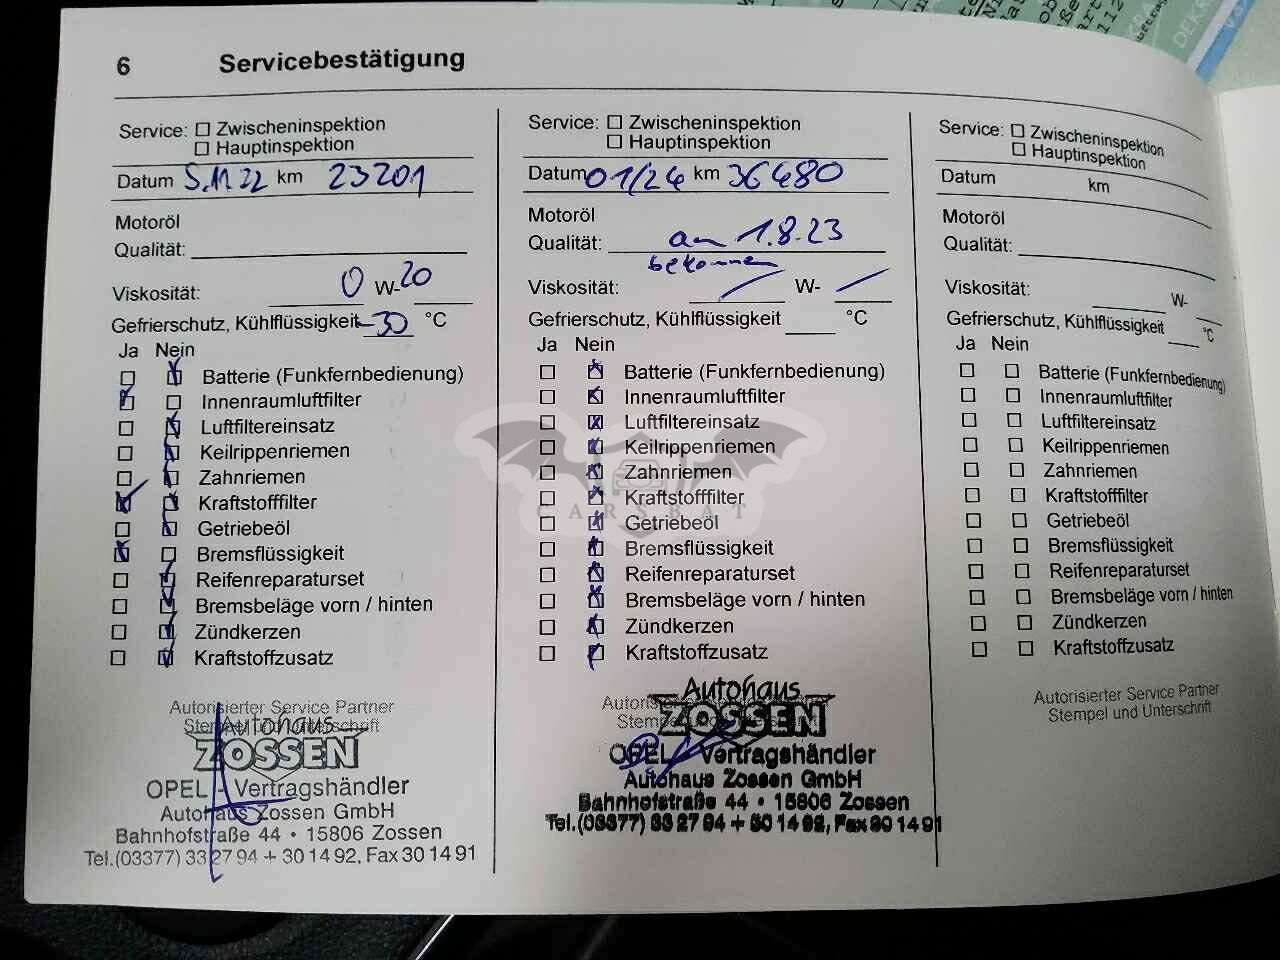 6 Servicebestätigung
Service: Zwischeninspektion
Hauptinspektion
Datum 5.11.22 km 23201
Motoröl
Qualität:
Viskosität: 0 W-20
Gefrierschutz, Kühlflüssigkeit -30 °C
Ja Nein
Batterie (Funkfernbedienung)
Innenraumluftfilter
Luftfiltereinsatz
Keilrippenriemen
Zahnriemen
Kraftstofffilter
Getriebeöl
Bremsflüssigkeit
Reifenreparaturset
Bremsbeläge vorn / hinten
Zündkerzen
Kraftstoffzusatz
Autorisierter Service Partner
Stempel und Unterschrift
Autohaus
ZOSSEN
OPEL - Vertragshändler
Autohaus Zossen GmbH
Bahnhofstraße 44 • 15806 Zossen
Tel.(03377) 33 27 94 + 30 14 92, Fax 30 14 91
Service: Zwischeninspektion
Hauptinspektion
Datum 01/24 km 36480
Motoröl
Qualität: am 1.8.23
bekommen
Viskosität: W-
Gefrierschutz, Kühlflüssigkeit °C
Ja Nein
Batterie (Funkfernbedienung)
Innenraumluftfilter
Luftfiltereinsatz
Keilrippenriemen
Zahnriemen
Kraftstofffilter
Getriebeöl
Bremsflüssigkeit
Reifenreparaturset
Bremsbeläge vorn / hinten
Zündkerzen
Kraftstoffzusatz
Autorisierter Service Partner
Stempel und
Autohaus
ZOSSEN
OPEL - Vertragshändler
Autohaus Zossen GmbH
Bahnhofstraße 44 • 15806 Zossen
Tel.(03377) 33 27 94 + 30 14 92, Fax 30 14 91
Service: Zwischeninspektion
Hauptinspektion
Datum km
Motoröl
Qualität:
Viskosität: W-
Gefrierschutz, Kühlflüssigkeit °C
Ja Nein
Batterie (Funkfernbedienung)
Innenraumluftfilter
Luftfiltereinsatz
Keilrippenriemen
Zahnriemen
Kraftstofffilter
Getriebeöl
Bremsflüssigkeit
Reifenreparaturset
Bremsbeläge vorn / hinten
Zündkerzen
Kraftstoffzusatz
Autorisierter Service Partner
Stempel und Unterschrift
CARSBAT